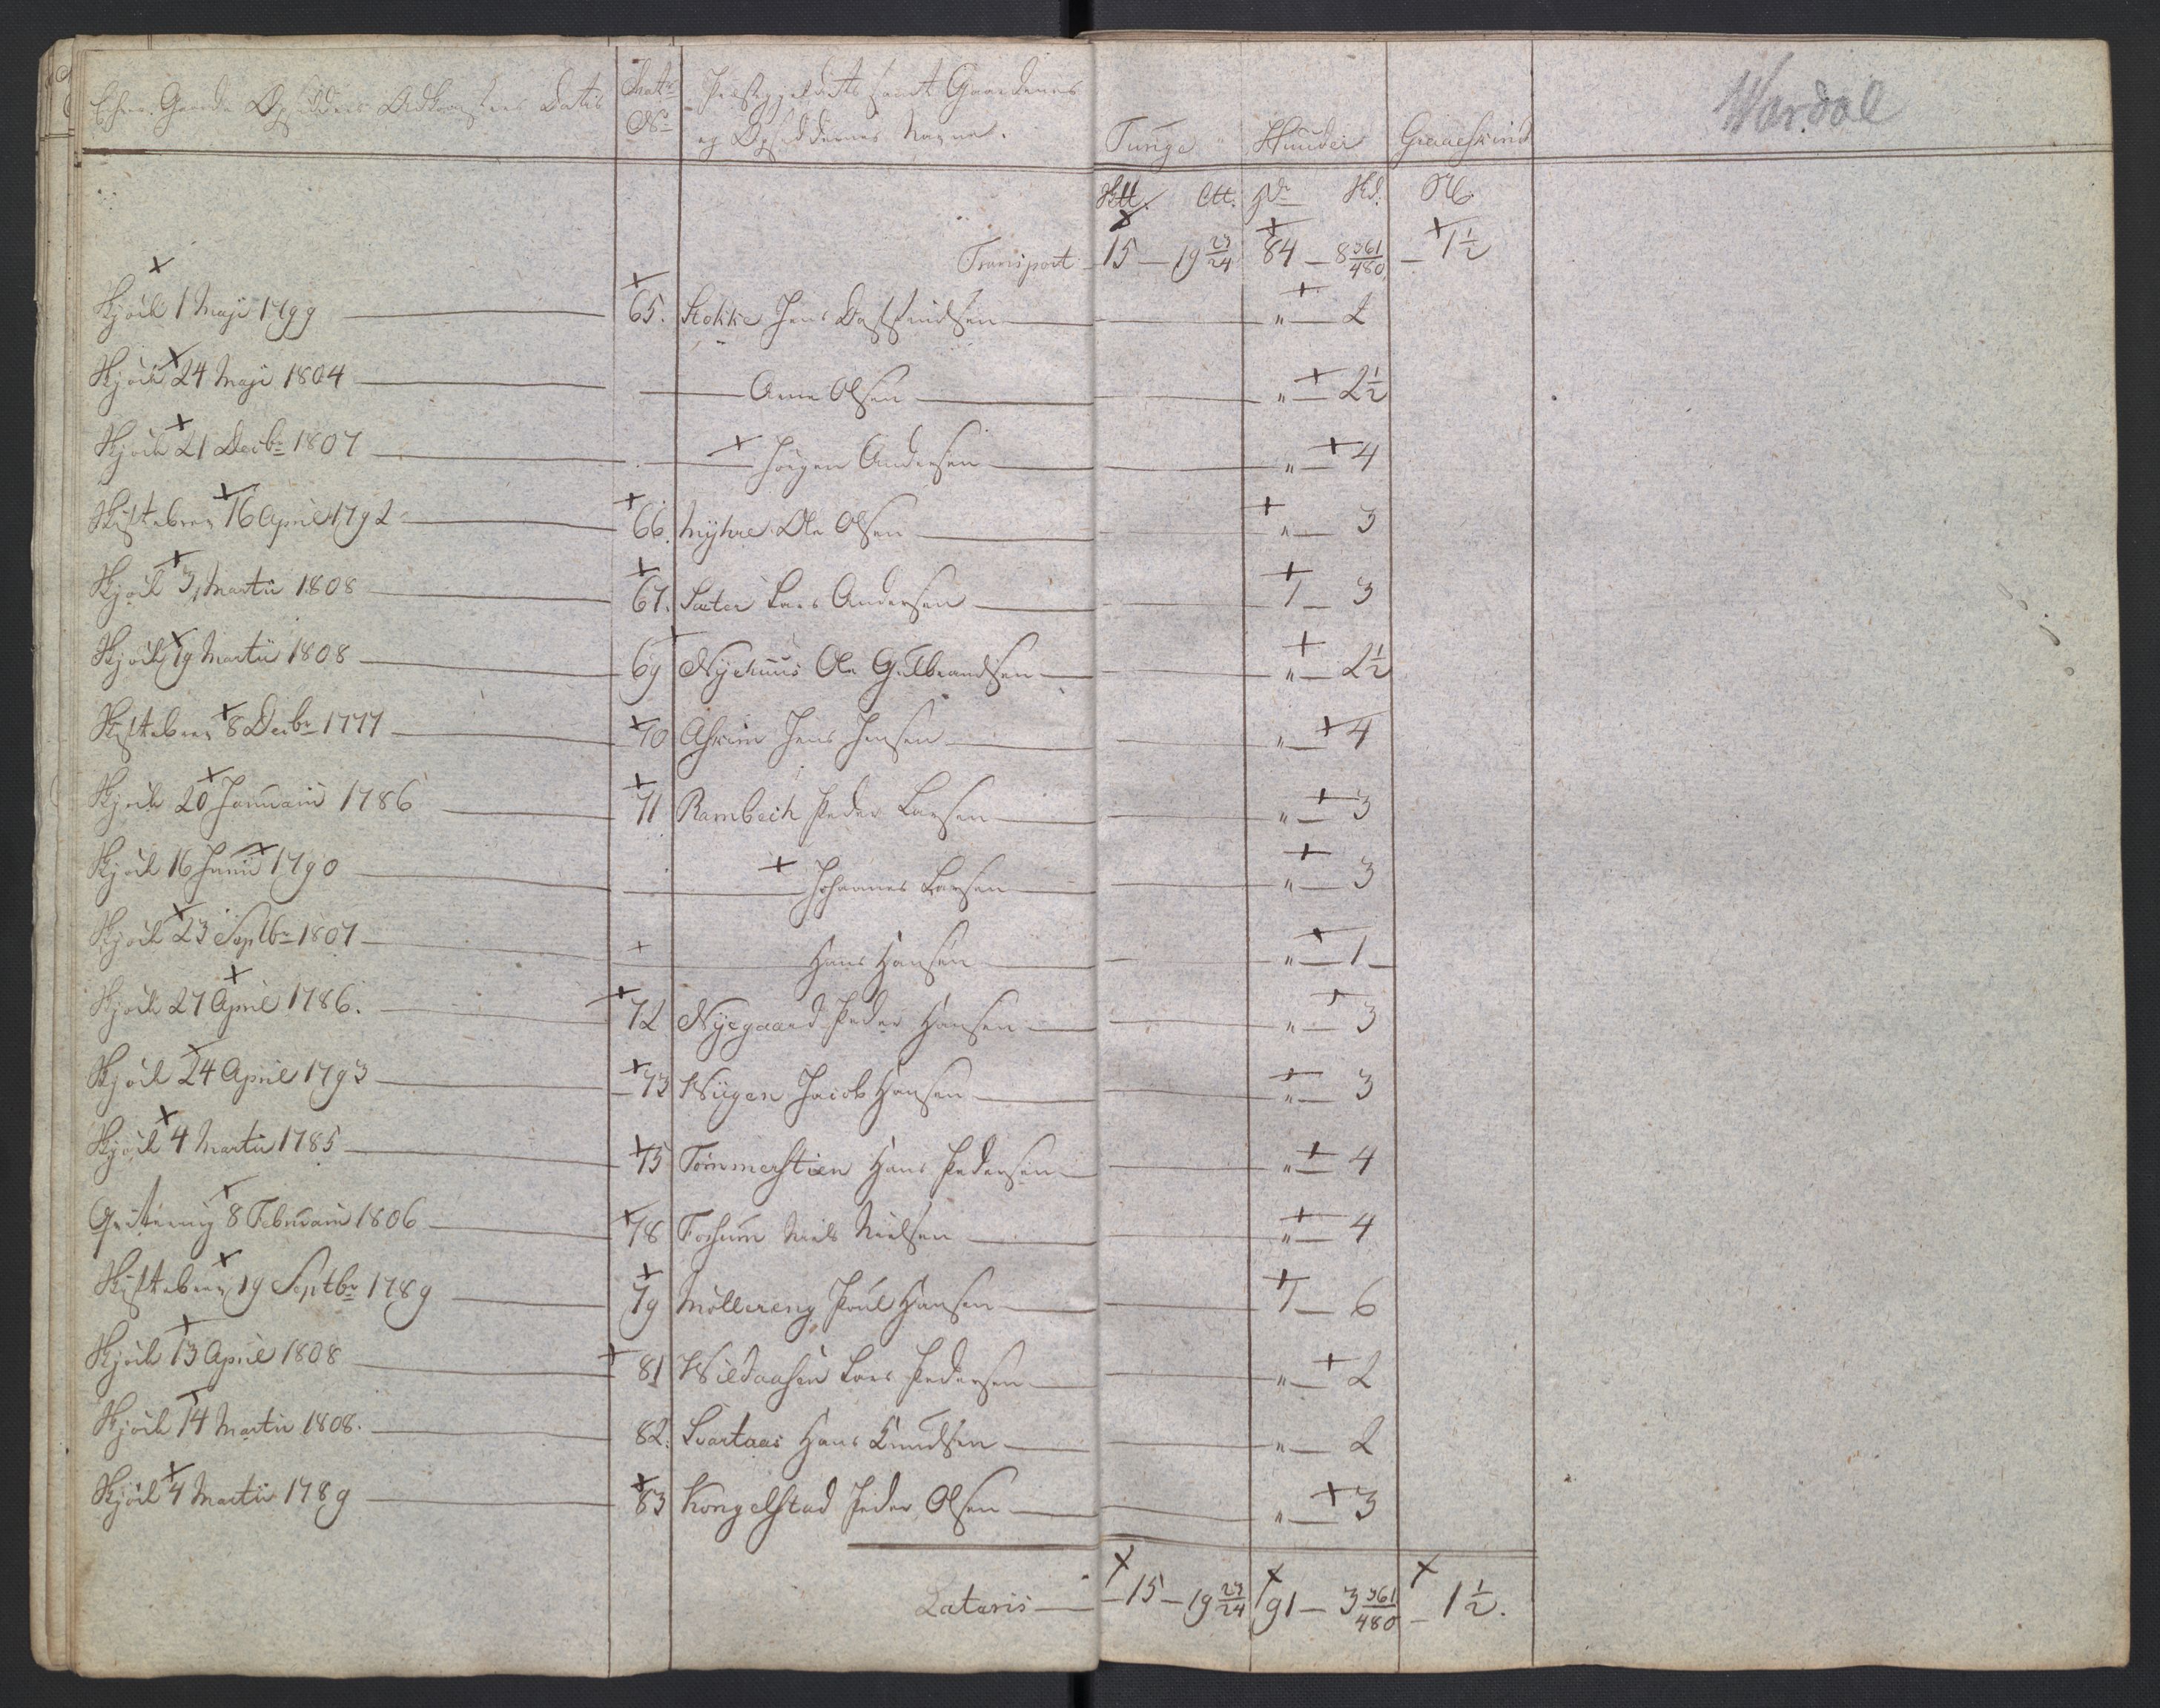 Wardal
Opsiddernes Adkomsters Datis | Matr: No | Præstegjeldets samt Gaardenes og Opsiddernes Navne. | Tunge | Huuder | Graaeskind
Transport 15 — 19 23/24 | 84 — 8 361/480 | 1 1/2
Skjöde 1 Maji 1799 — 65. Stokke Jens — „ — 2
Skjöde 24 Maji 1804 — Arne Olsen — „ — 2 1/2
Skjöde 21 Decbr 1807 — Jörgen Andersen — „ — 4
Skiftebrev 16 April 1792 — 66. Myhre Ole Olsen — „ — 3
Skjöde 3 Martii 1808 — 67. Sæter Lars Andersen — 1 — 3
Skjöde 19 Martii 1808 — 69 Nyehuus Ole Gulbrandsen — „ — 2 1/2
Skiftebrev 8 Decbr 1777 — 70 Askim Jens Jensen — „ — 4
Skjöde 20 Januarii 1786 — 71 Rambech Peder Larsen — „ — 3
Skjöde 16 Junii 1790 — Johannes Larsen — „ — 3
Skjöde 23 Septbr 1807 — Hans Hansen — „ — 1
Skjöde 27 April 1786. — 72 Nyegaard Peder Hansen — „ — 3
Skjöde 24 April 1793 — 73 Wiigen Jacob Hansen — „ — 3
Skjöde 4 Martii 1785 — 75 Tömmerstien Hans Pedersen — „ — 4
Qvitering 8 Februarii 1806 — 78 Fossum Niels Nielsen — „ — 4
Skiftebrev 19 Septbr 1789 — 79 Möllereng Poul Hansen — 1 — 6
Skjöde 13 April 1808 — 81 Wildaasen Lars Pedersen — „ — 2
Skjöde 14 Martii 1808. — 82. Svartaas Hans Knudsen — „ — 2
Skjöde 4 Martii 1789 — 83 Kongelstad Peder Olsen — „ — 3
Lateris — 15 — 19 23/24 | 91 — 3 361/480 — 1 1/2.